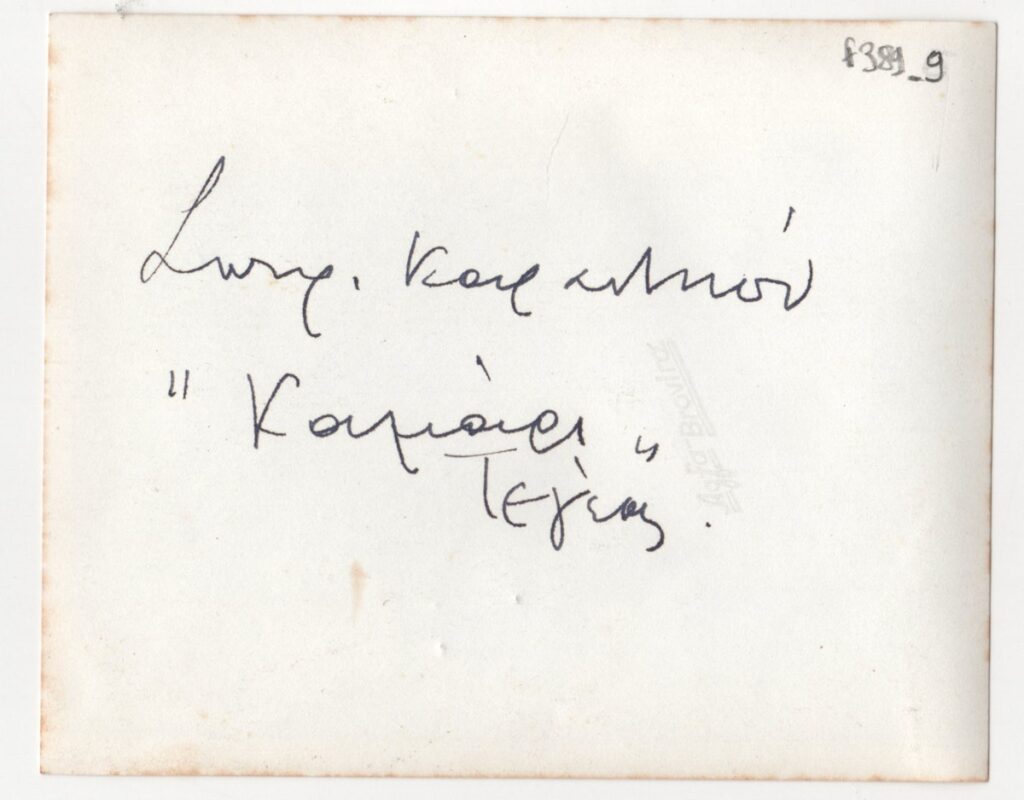 f389_9
Σωτηρ. Καραντινού
"Καμάρι"
Τεγέας.
Agfa-Brovira